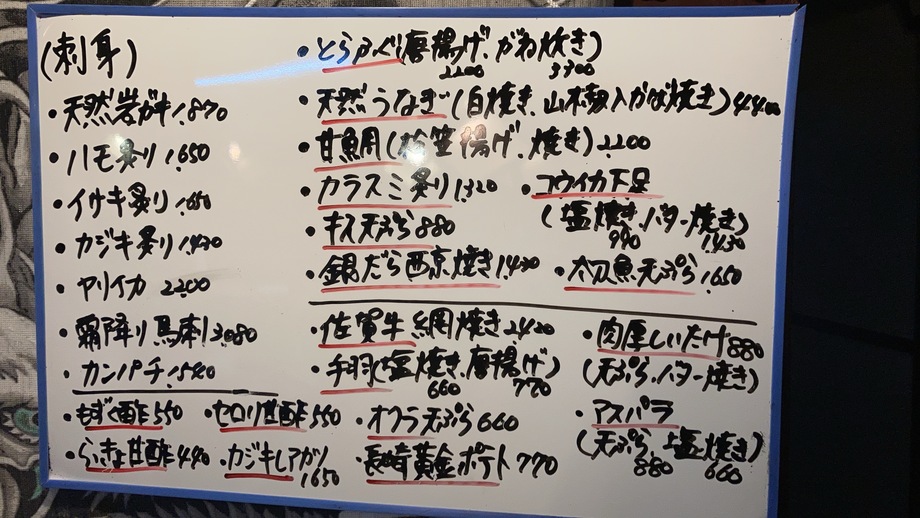 (刺身)
・天然岩ガキ 1,870
・ハモ炙り 1,650
・イサキ炙り 1,650
・カジキ炙り 1,430
・ヤリイカ 2,200
・霜降り馬刺 3,080
・カンパチ 1,540
・もずく酢 550
・セロリ甘酢 550
・らっきょ甘酢 440
・カジキレアカツ
1650
・とらふぐ(唐揚げ、がわ炊き)
2200 3300
・天然うなぎ(白焼き、山本勘入かば焼き) 4400
・甘鯛(松笠揚げ、焼き) 2,200
・カラスミ炙り 1,320
・コウイカ下足
(塩焼き、バター焼き)
990 1,430
・キス天ぷら 880
・銀だら西京焼き 1,430
・太刀魚天ぷら 1,650
・佐賀牛網焼き 2,420
・手羽(塩焼き、唐揚げ)
660 770
・オクラ天ぷら 660
・長崎黄金ポテト 770
・肉厚しいたけ 880
(天ぷら、バター焼き)
・アスパラ
(天ぷら、塩焼き)
880 660